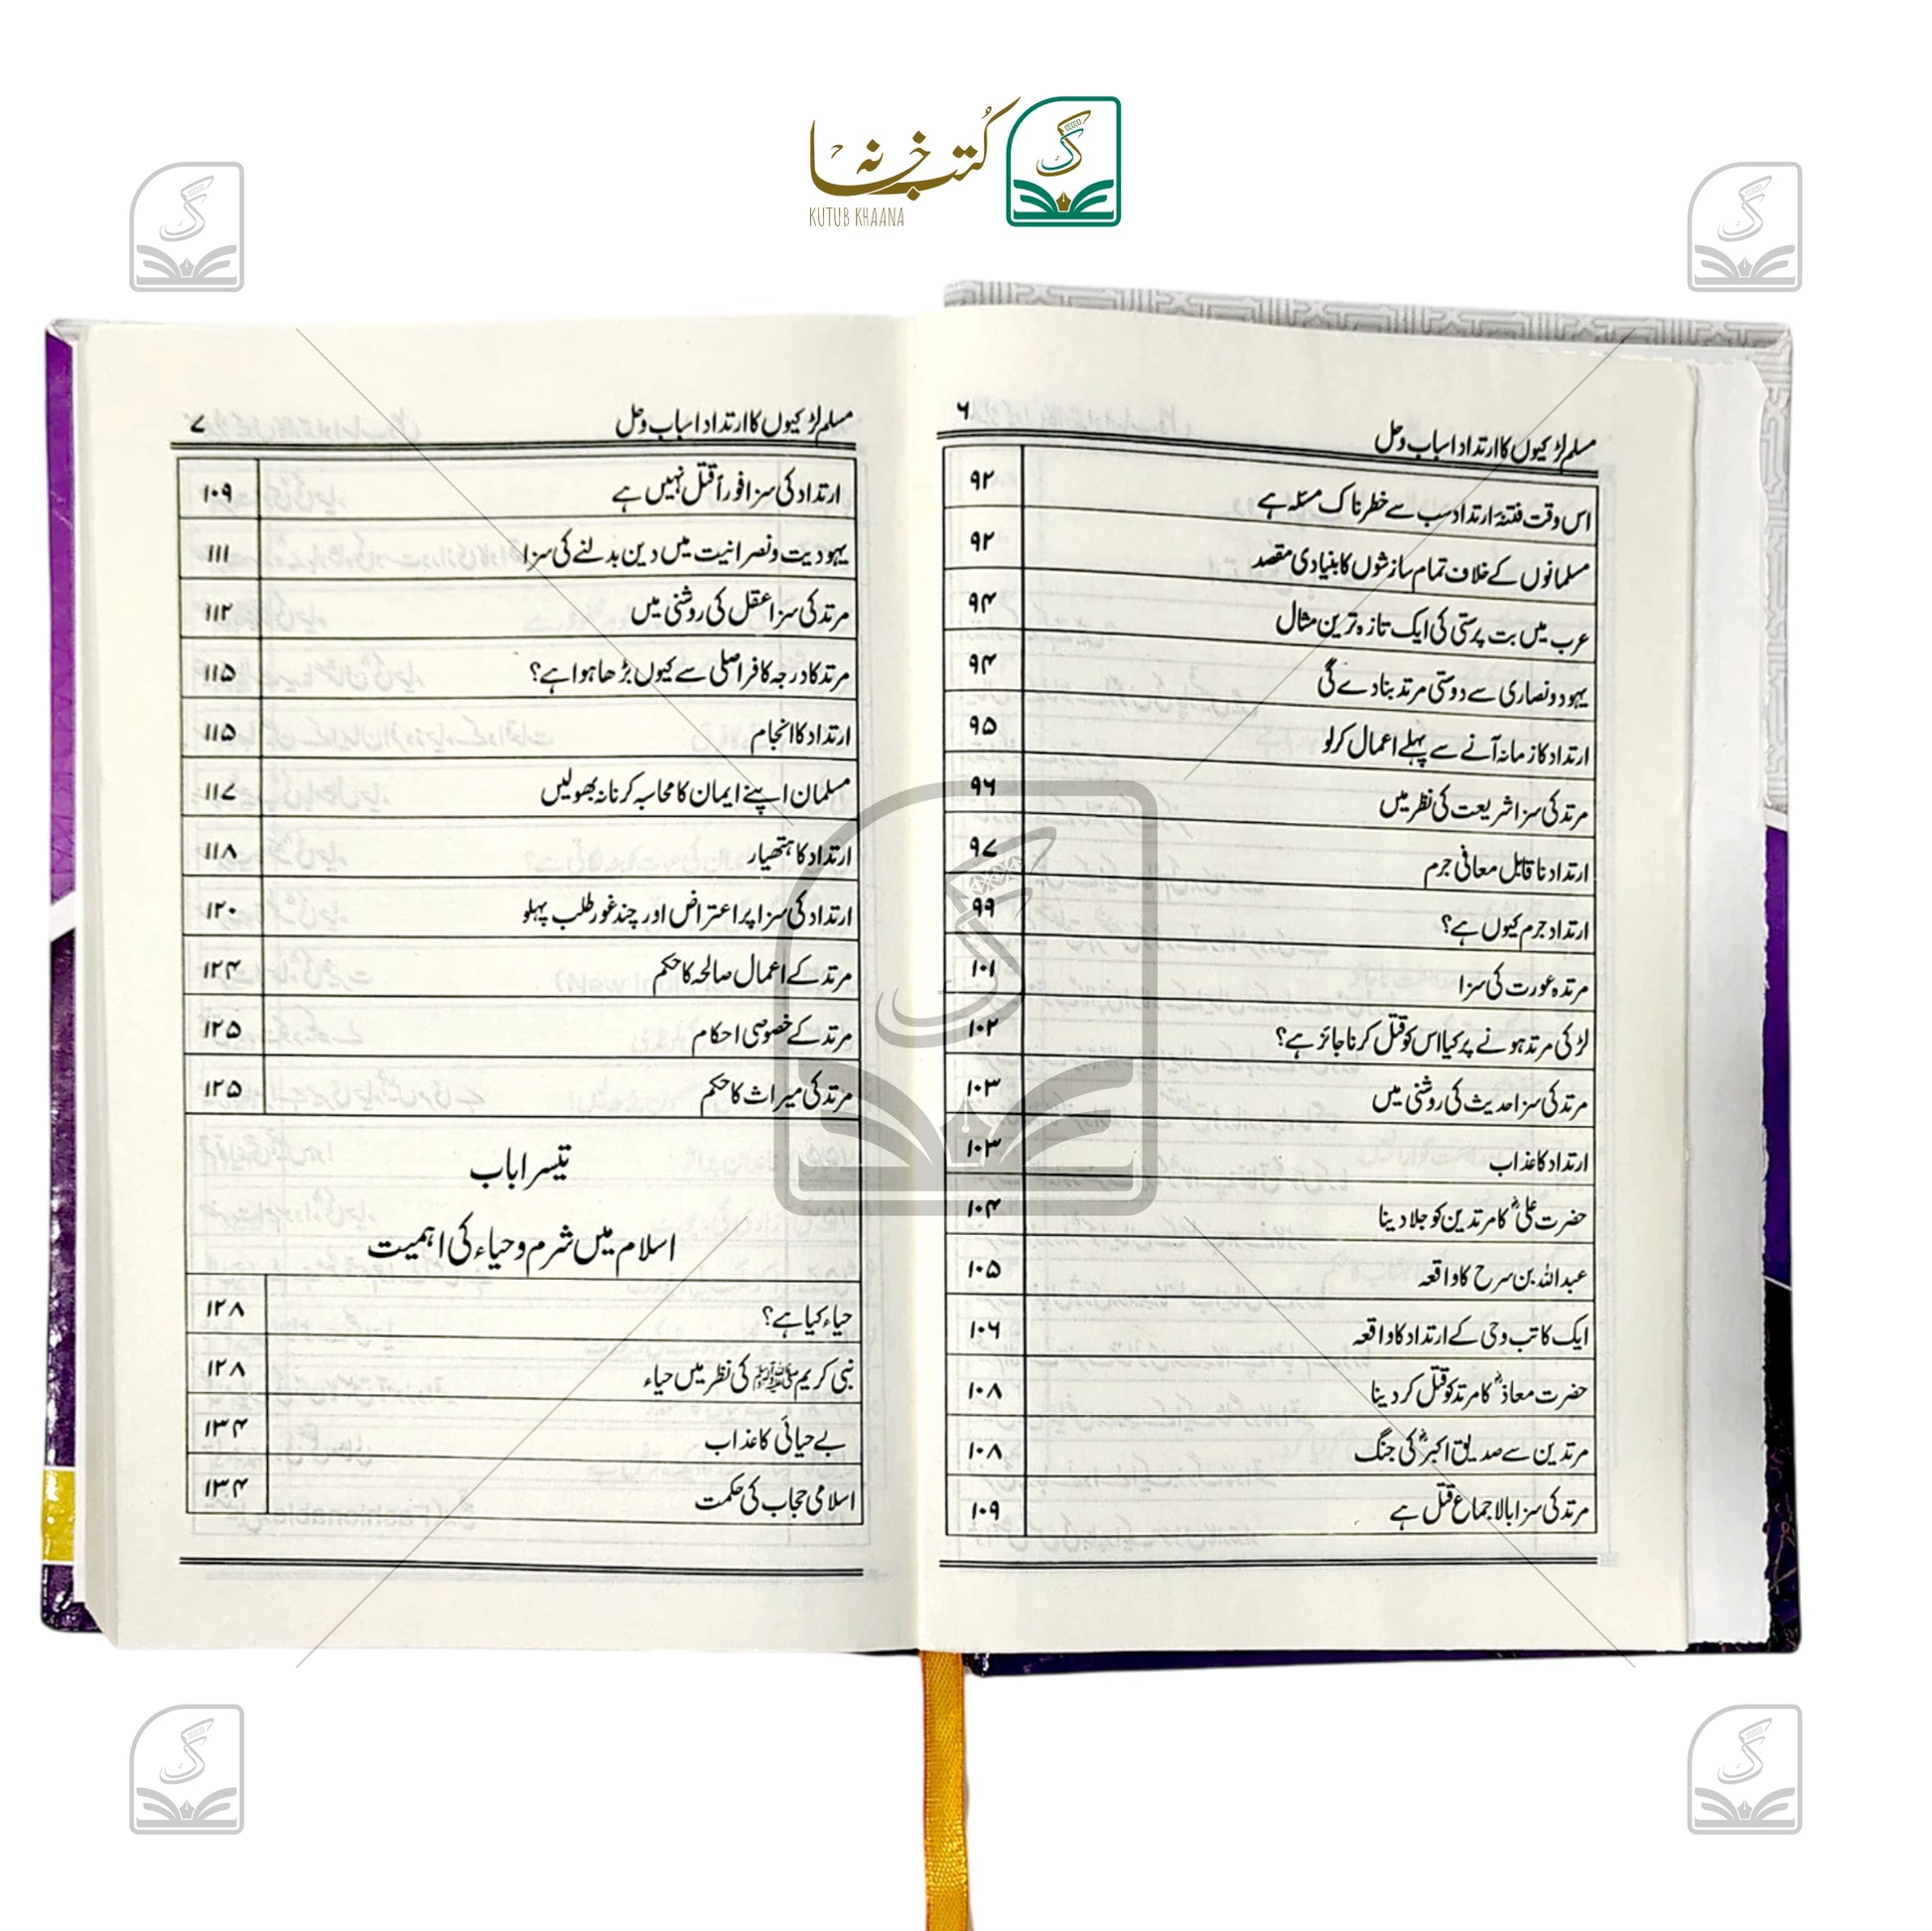 کُتب خانہ
KUTUB KHAANA
مسلم لڑکیوں کا ارتداد اسباب وحل ۶
اس وقت فتنۂ ارتداد سب سے خطرناک مسئلہ ہے ۹۲
مسلمانوں کے خلاف تمام سازشوں کا بنیادی مقصد ۹۲
عرب میں بت پرستی کی ایک تازہ ترین مثال ۹۴
یہود و نصاری سے دوستی مرتد بنا دے گی ۹۴
ارتداد کا زمانہ آنے سے پہلے اعمال کرلو ۹۵
مرتد کی سزا شریعت کی نظر میں ۹۶
ارتداد نا قابل معافی جرم ۹۷
ارتداد جرم کیوں ہے؟ ۹۹
مرتدہ عورت کی سزا ۱۰۱
لڑکی مرتد ہونے پر کیا اس کو قتل کرنا جائز ہے؟ ۱۰۲
مرتد کی سزا حدیث کی روشنی میں ۱۰۳
ارتداد کا عذاب ۱۰۳
حضرت علیؓ کا مرتدین کو جلا دینا ۱۰۴
عبد اللہ بن سرح کا واقعہ ۱۰۵
ایک کاتب وحی کے ارتداد کا واقعہ ۱۰۶
حضرت معاذؓ کا مرتد کو قتل کر دینا ۱۰۸
مرتدین سے صدیق اکبرؓ کی جنگ ۱۰۸
مرتد کی سزا بالاجماع قتل ہے ۱۰۹
مسلم لڑکیوں کا ارتداد اسباب وحل ۷
ارتداد کی سزا فوراً قتل نہیں ہے ۱۰۹
یہودیت و نصرانیت میں دین بدلنے کی سزا ۱۱۱
مرتد کی سزا عقل کی روشنی میں ۱۱۲
مرتد کا درجہ کافر اصلی سے کیوں بڑھا ہوا ہے؟ ۱۱۵
ارتداد کا انجام ۱۱۵
مسلمان اپنے ایمان کا محاسبہ کرنا نہ بھولیں ۱۱۷
ارتداد کا ہتھیار ۱۱۸
ارتداد کی سزا پر اعتراض اور چند غور طلب پہلو ۱۲۰
مرتد کے اعمال صالحہ کا حکم ۱۲۴
مرتد کے خصوصی احکام ۱۲۵
مرتد کی میراث کا حکم ۱۲۵
تیسرا باب
اسلام میں شرم و حیاء کی اہمیت
حیاء کیا ہے؟ ۱۲۸
نبی کریم ﷺ کی نظر میں حیاء ۱۲۸
بے حیائی کا عذاب ۱۳۴
اسلامی حجاب کی حکمت ۱۳۴